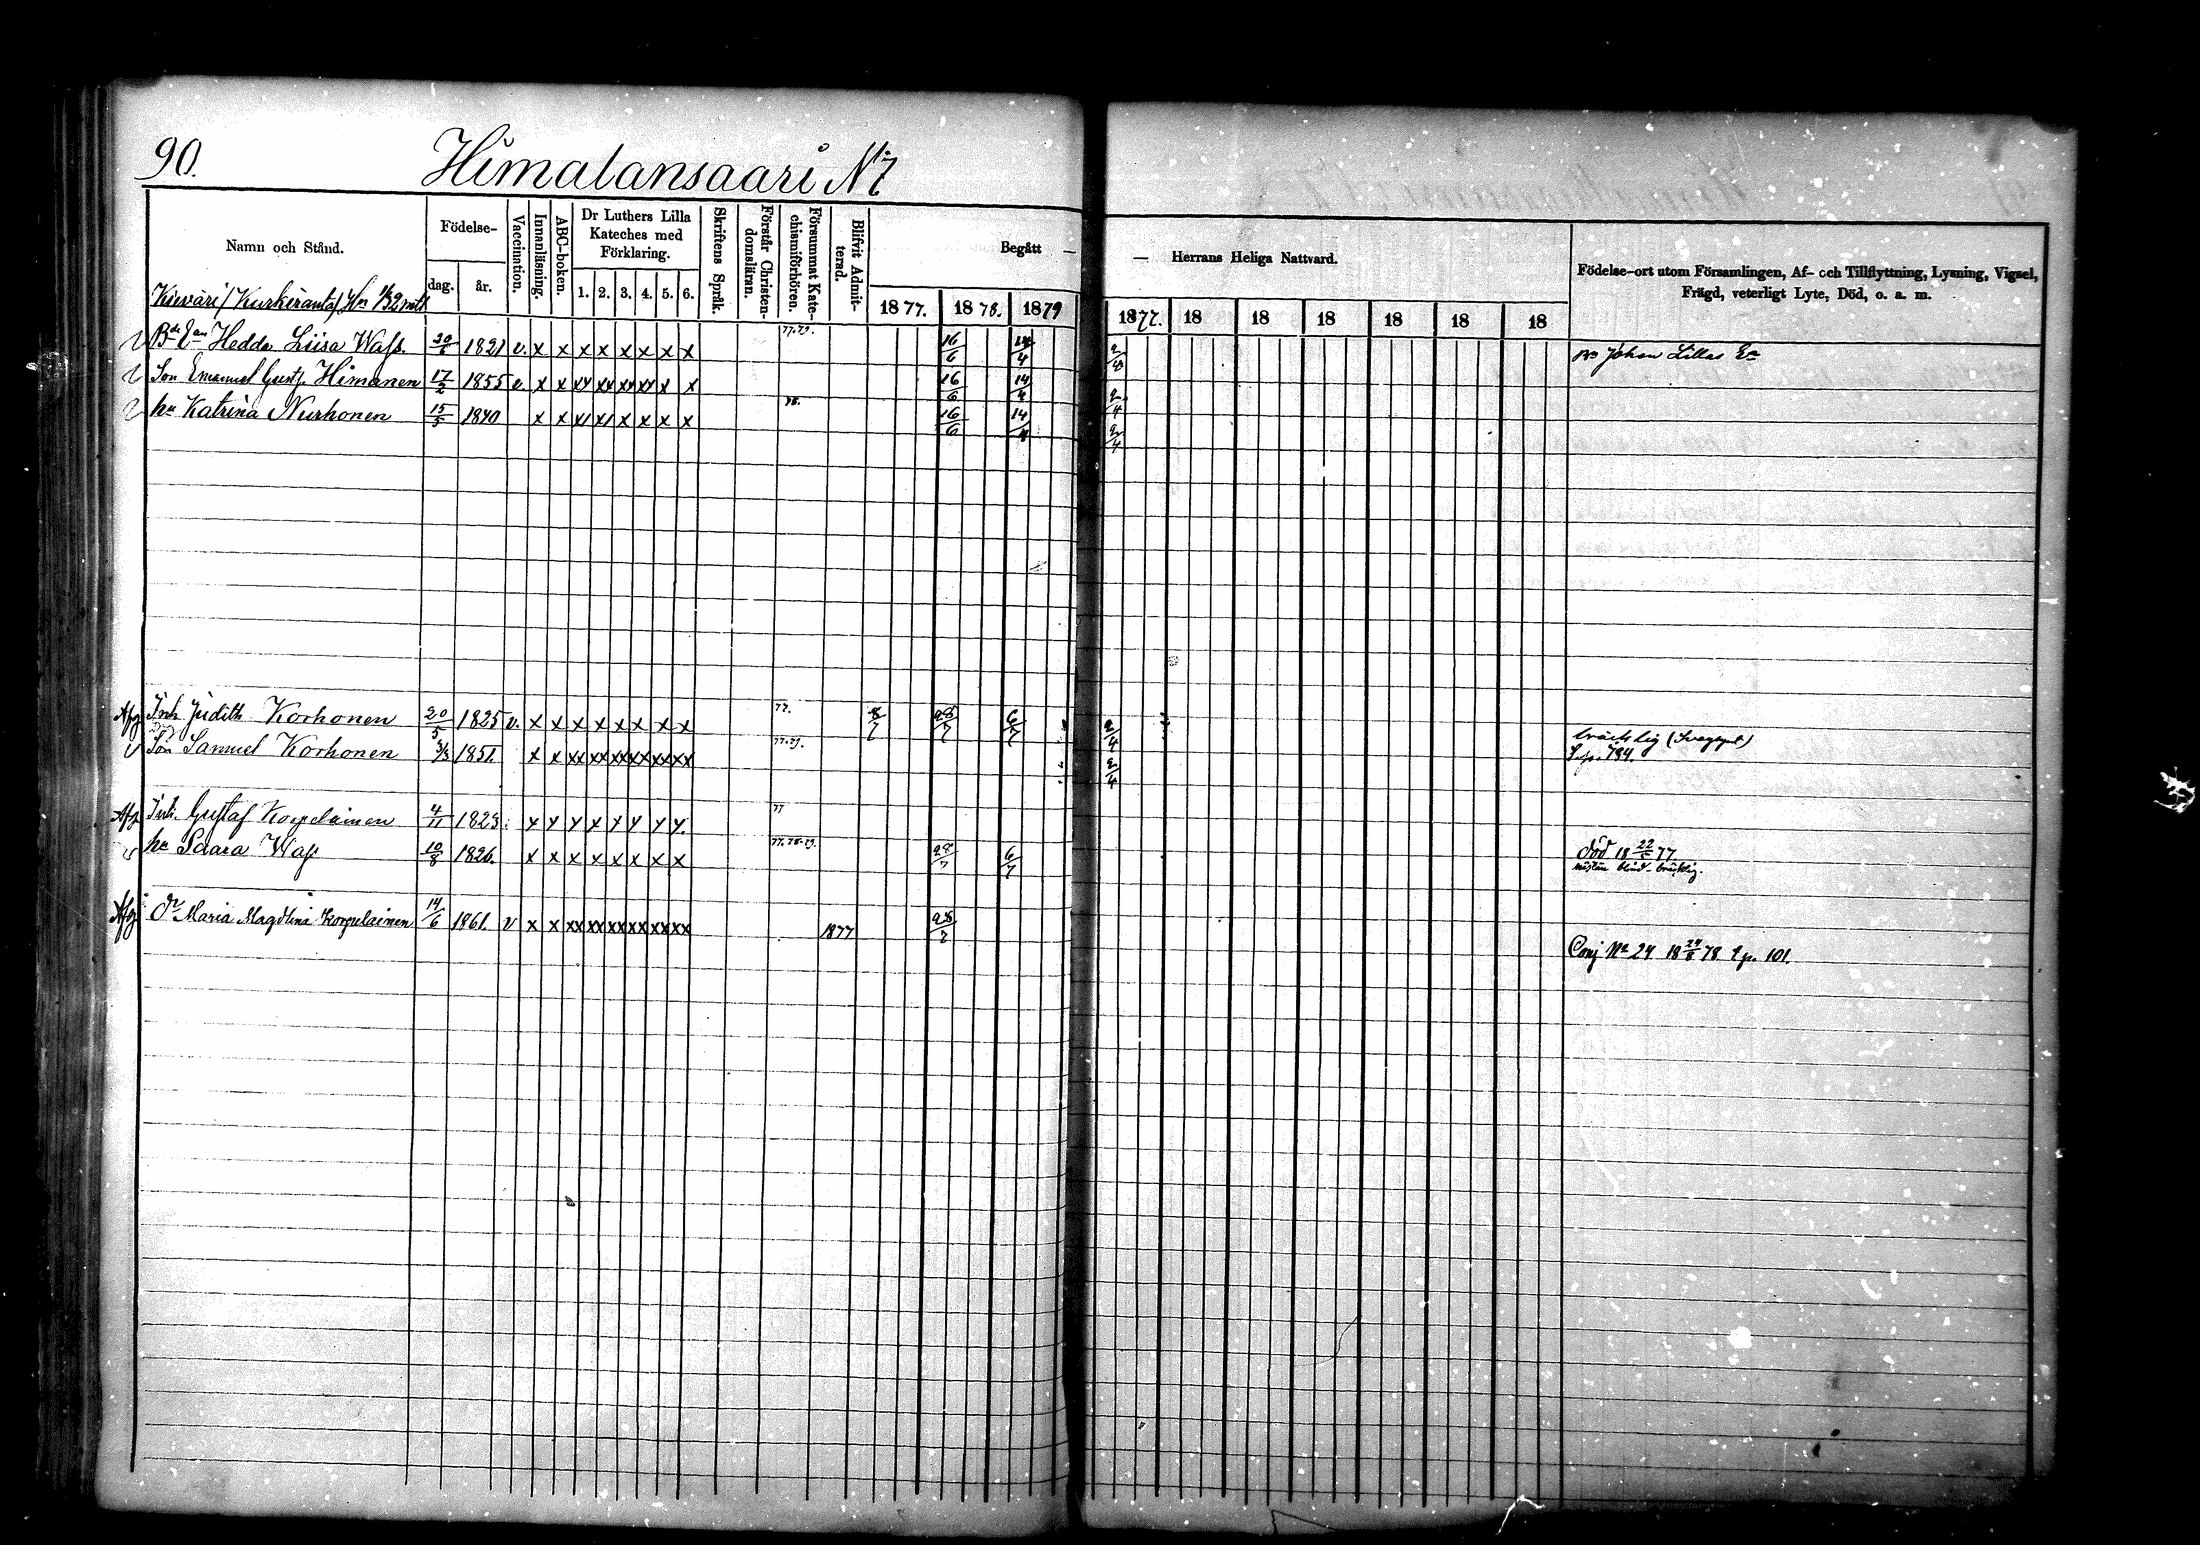 90.
Himalansaari N 7
Namn och Stånd.
Födelse-
dag.
år.
Vaccination.
Innanläsning.
ABC-boken.
Dr Luthers Lilla Kateches med Förklaring.
1. 2. 3. 4. 5. 6.
Skriftens Språk.
Förstår Christendomsläran.
Försummat Katechismiförhören.
Blifvit Admitterad.
Begått —
1877. 1878. 1879
— Herrans Heliga Nattvard.
1877. 18 18 18 18 18 18
Födelse-ort utom Församlingen, Af- och Tillflyttning, Lysning, Vigsel,
Frägd, veterligt Lyte, Död, o. a. m.
Hedda Liisa Wass. 20/6 1821 v. x x x x x x x x 77.79. 16/6 14/4 2/4 Johan Lillas Ea
Son Emanuel Gust. Himanen 17/2 1855 v. x x xx xx xx xx x x 16/6 14/4 2/4
hu Katrina Nurhonen 15/5 1840 x x x x x x 78. 16/6 14/4 2/4
Afg Inh Judith Korhonen 20/5 1825 v. x x x x x x x x 77. 8/7 28/7 6/7 2/4 bräcklig
Son Samuel Korhonen 3/3 1851. x x xx xx xx xx xx xx 77.79. 2/4 S. p. 784.
Afg Inh. Gustaf Korpelainen 4/11 1823. x x x x x x x x 77
hu Saara Wass 10/8 1826. x x x x x x x x 77.78.79. 28/7 6/7 död 18 22/5 77.
blind - bräcklig.
Afg Dr Maria Magdlina Korpelainen 14/6 1861. v x x xx xx xx xx xx xx 1877 28/7
Conj No 24 18 24/8 78 p. 101.